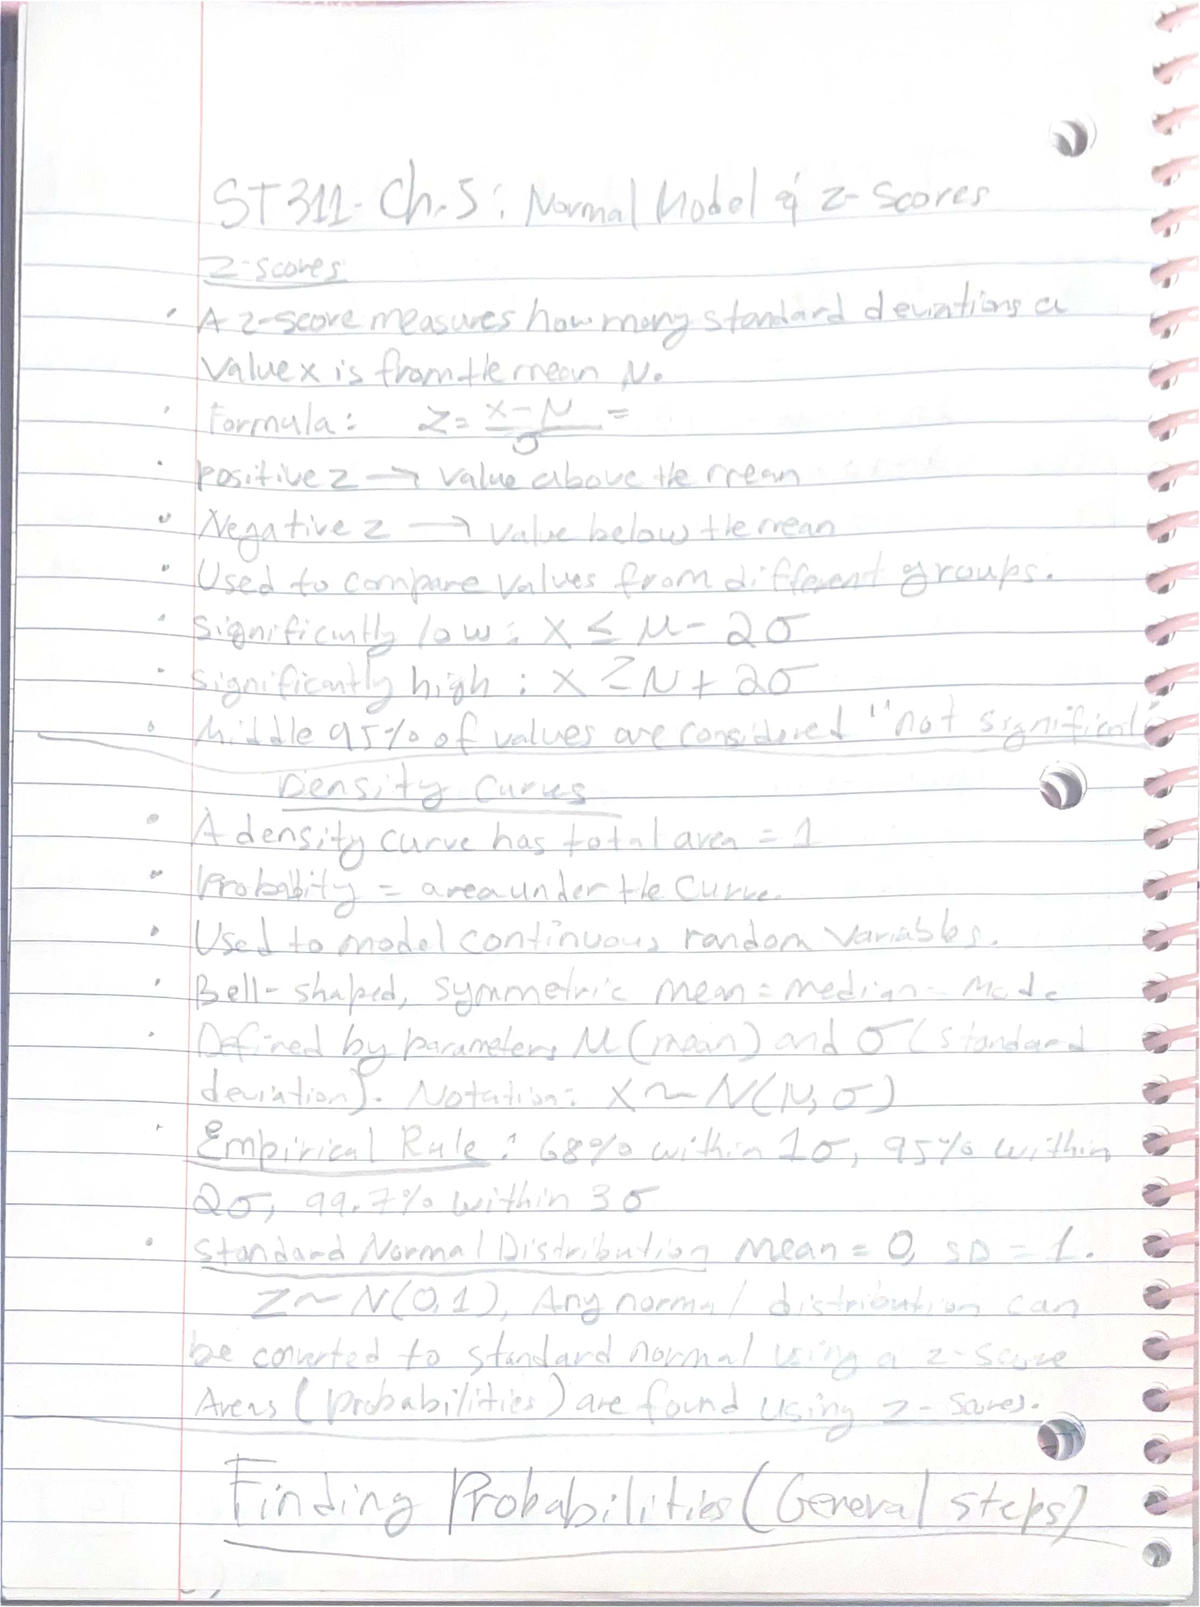 ST311- Ch.5: Normal Model & z-Scores
Z-scores
• A z-score measures how many standard deviations a
value x is from the mean μ.
• Formula: z = x-μ/σ =
• positive z → value above the mean
• Negative z → value below the mean
• Used to compare values from different groups.
• Significantly low: x ≤ μ - 2σ
• Significantly high: x ≥ μ + 2σ
• Middle 95% of values are considered "not significant"
Density Curves
• A density curve has total area = 1
• Probability = area under the curve.
• Used to model continuous random variables.
• Bell-shaped, symmetric mean = median = Mode
• Defined by parameters μ (mean) and σ (standard
deviation). Notation: X ~ N(μ, σ)
• Empirical Rule: 68% within 1σ, 95% within
2σ, 99.7% within 3σ
• Standard Normal Distribution Mean = 0, SD = 1.
Z ~ N(0,1), Any normal distribution can
be converted to standard normal using a z-score
Areas (probabilities) are found using z-scores.
Finding Probabilities (General steps)